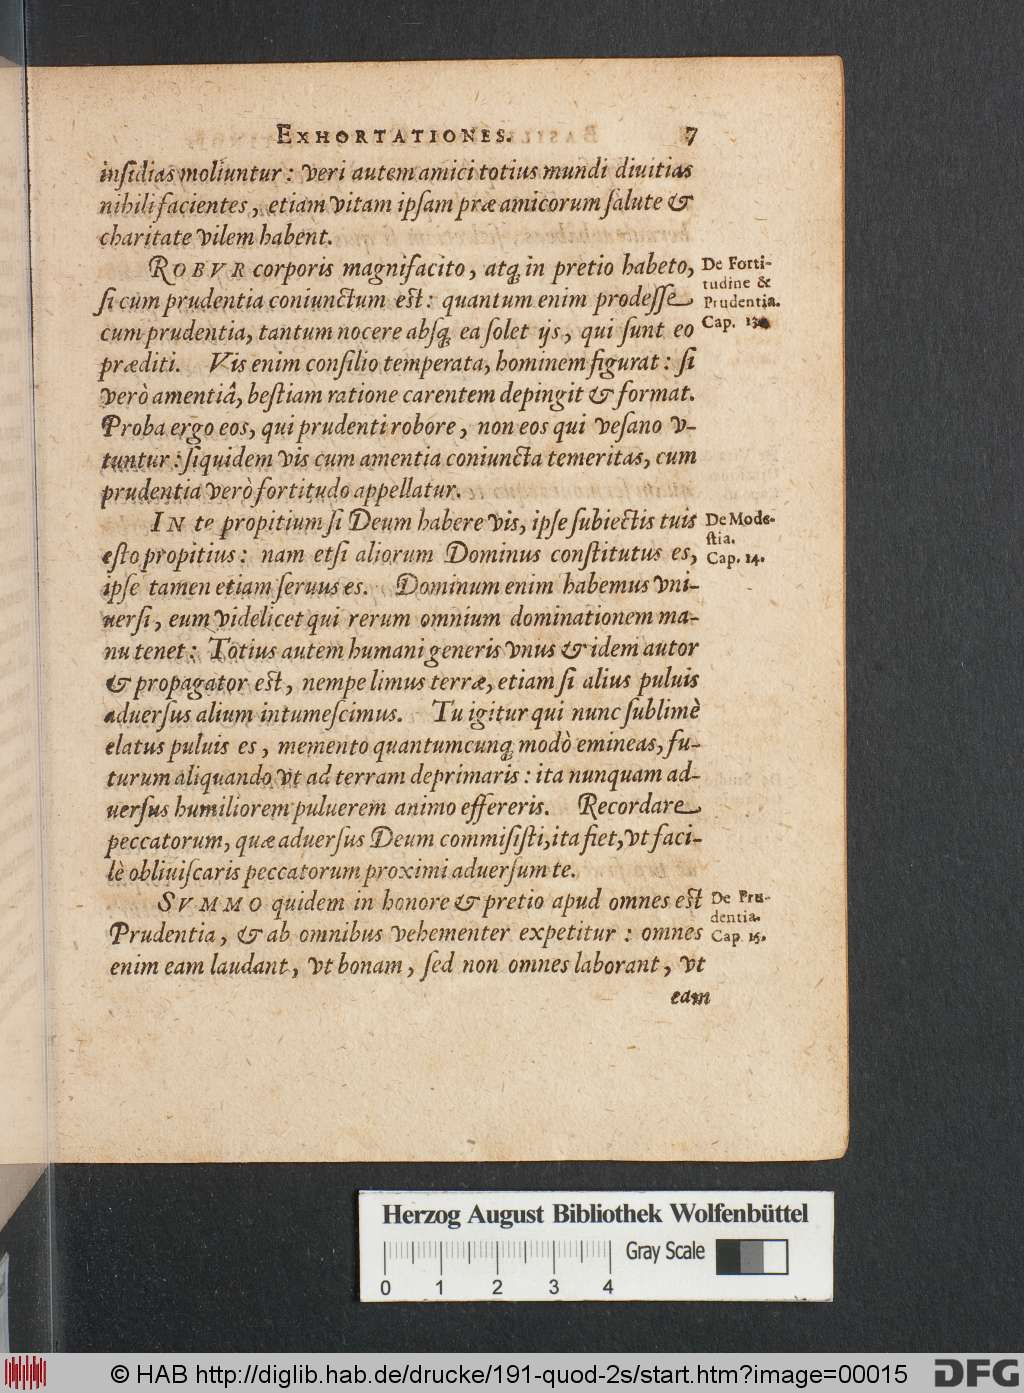 EXHORTATIONES. 7
inſidias moliuntur: veri autem amici totius mundi diuitias
nihili facientes, etiam vitam ipſam præ amicorum ſalute &
charitate vilem habent.
ROBVR corporis magnifacito, atq́; in pretio habeto,
ſi cùm prudentia coniunctum est: quantum enim prodeſſe
cum prudentia, tantum nocere abſq́; ea ſolet ijs, qui ſunt eo
præditi. Vis enim conſilio temperata, hominem figurat: ſi
verò amentiâ, beſtiam ratione carentem depingit & format.
Proba ergo eos, qui prudenti robore, non eos qui veſano v-
tuntur: ſiquidem vis cum amentia coniuncta temeritas, cum
prudentia verò fortitudo appellatur.
De Forti-
tudine &
Prudentia.
Cap. 13.
IN te propitium ſi Deum habere vis, ipſe ſubiectis tuis
eſto propitius: nam etſi aliorum Dominus conſtitutus es,
ipſe tamen etiam ſeruus es. Dominum enim habemus vni-
uerſi, eum videlicet qui rerum omnium dominationem ma-
nu tenet: Totius autem humani generis vnus & idem autor
& propagator est, nempe limus terræ, etiam ſi alius puluis
aduerſus alium intumeſcimus. Tu igitur qui nunc ſublimè
elatus puluis es, memento quantumcunq́; modò emineas, fu-
turum aliquando vt ad terram deprimaris: ita nunquam ad-
uerſus humiliorem puluerem animo effereris. Recordare
peccatorum, quæ aduerſus Deum commiſiſti, ita fiet, vt faci-
lè obliuiſcaris peccatorum proximi aduerſum te.
De Mode-
ſtia.
Cap. 14.
SVMMO quidem in honore & pretio apud omnes est
Prudentia, & ab omnibus vehementer expetitur: omnes
enim eam laudant, vt bonam, ſed non omnes laborant, vt
eam
De Pru-
dentia.
Cap. 15.
Herzog August Bibliothek Wolfenbüttel
Gray Scale
0 1 2 3 4
© HAB http://diglib.hab.de/drucke/191-quod-2s/start.htm?image=00015
DFG